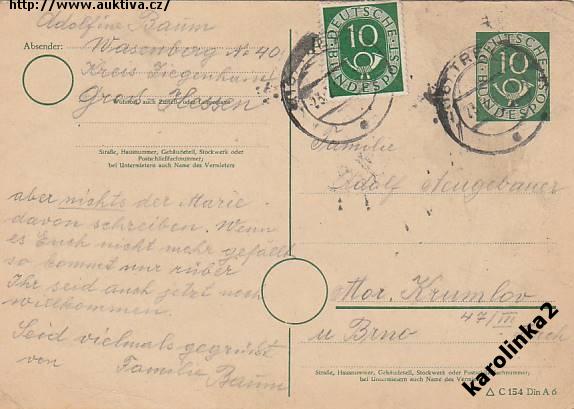 http://www.auktiva.cz/
Adolfine Baum
Absender: Wasenberg No 40
Kreis Ziegenhain
Groß Hessen
Wohnort, auch Zustell- oder Leitpostamt
Straße, Hausnummer, Gebäudeteil, Stockwerk oder
Postschließfachnummer;
bei Untermietern auch Name des Vermieters
aber nichts der Marie
davon schreiben. Wenn
es Euch nicht mehr gefällt
so kommt nur rüber
Ihr seid auch jetzt noch
willkommen.
Seid vielmals gegrüßt
von Familie
Baum
DEUTSCHE BUNDESPOST
10
DEUTSCHE BUNDESPOST
10
Familie
Adolf Neugebauer
Mor. Krumlov
47/III
u Brno
Straße, Hausnummer, Gebäudeteil, Stockwerk oder
bei Untermietern auch Name des
C 154 Din A 6
karolinka2